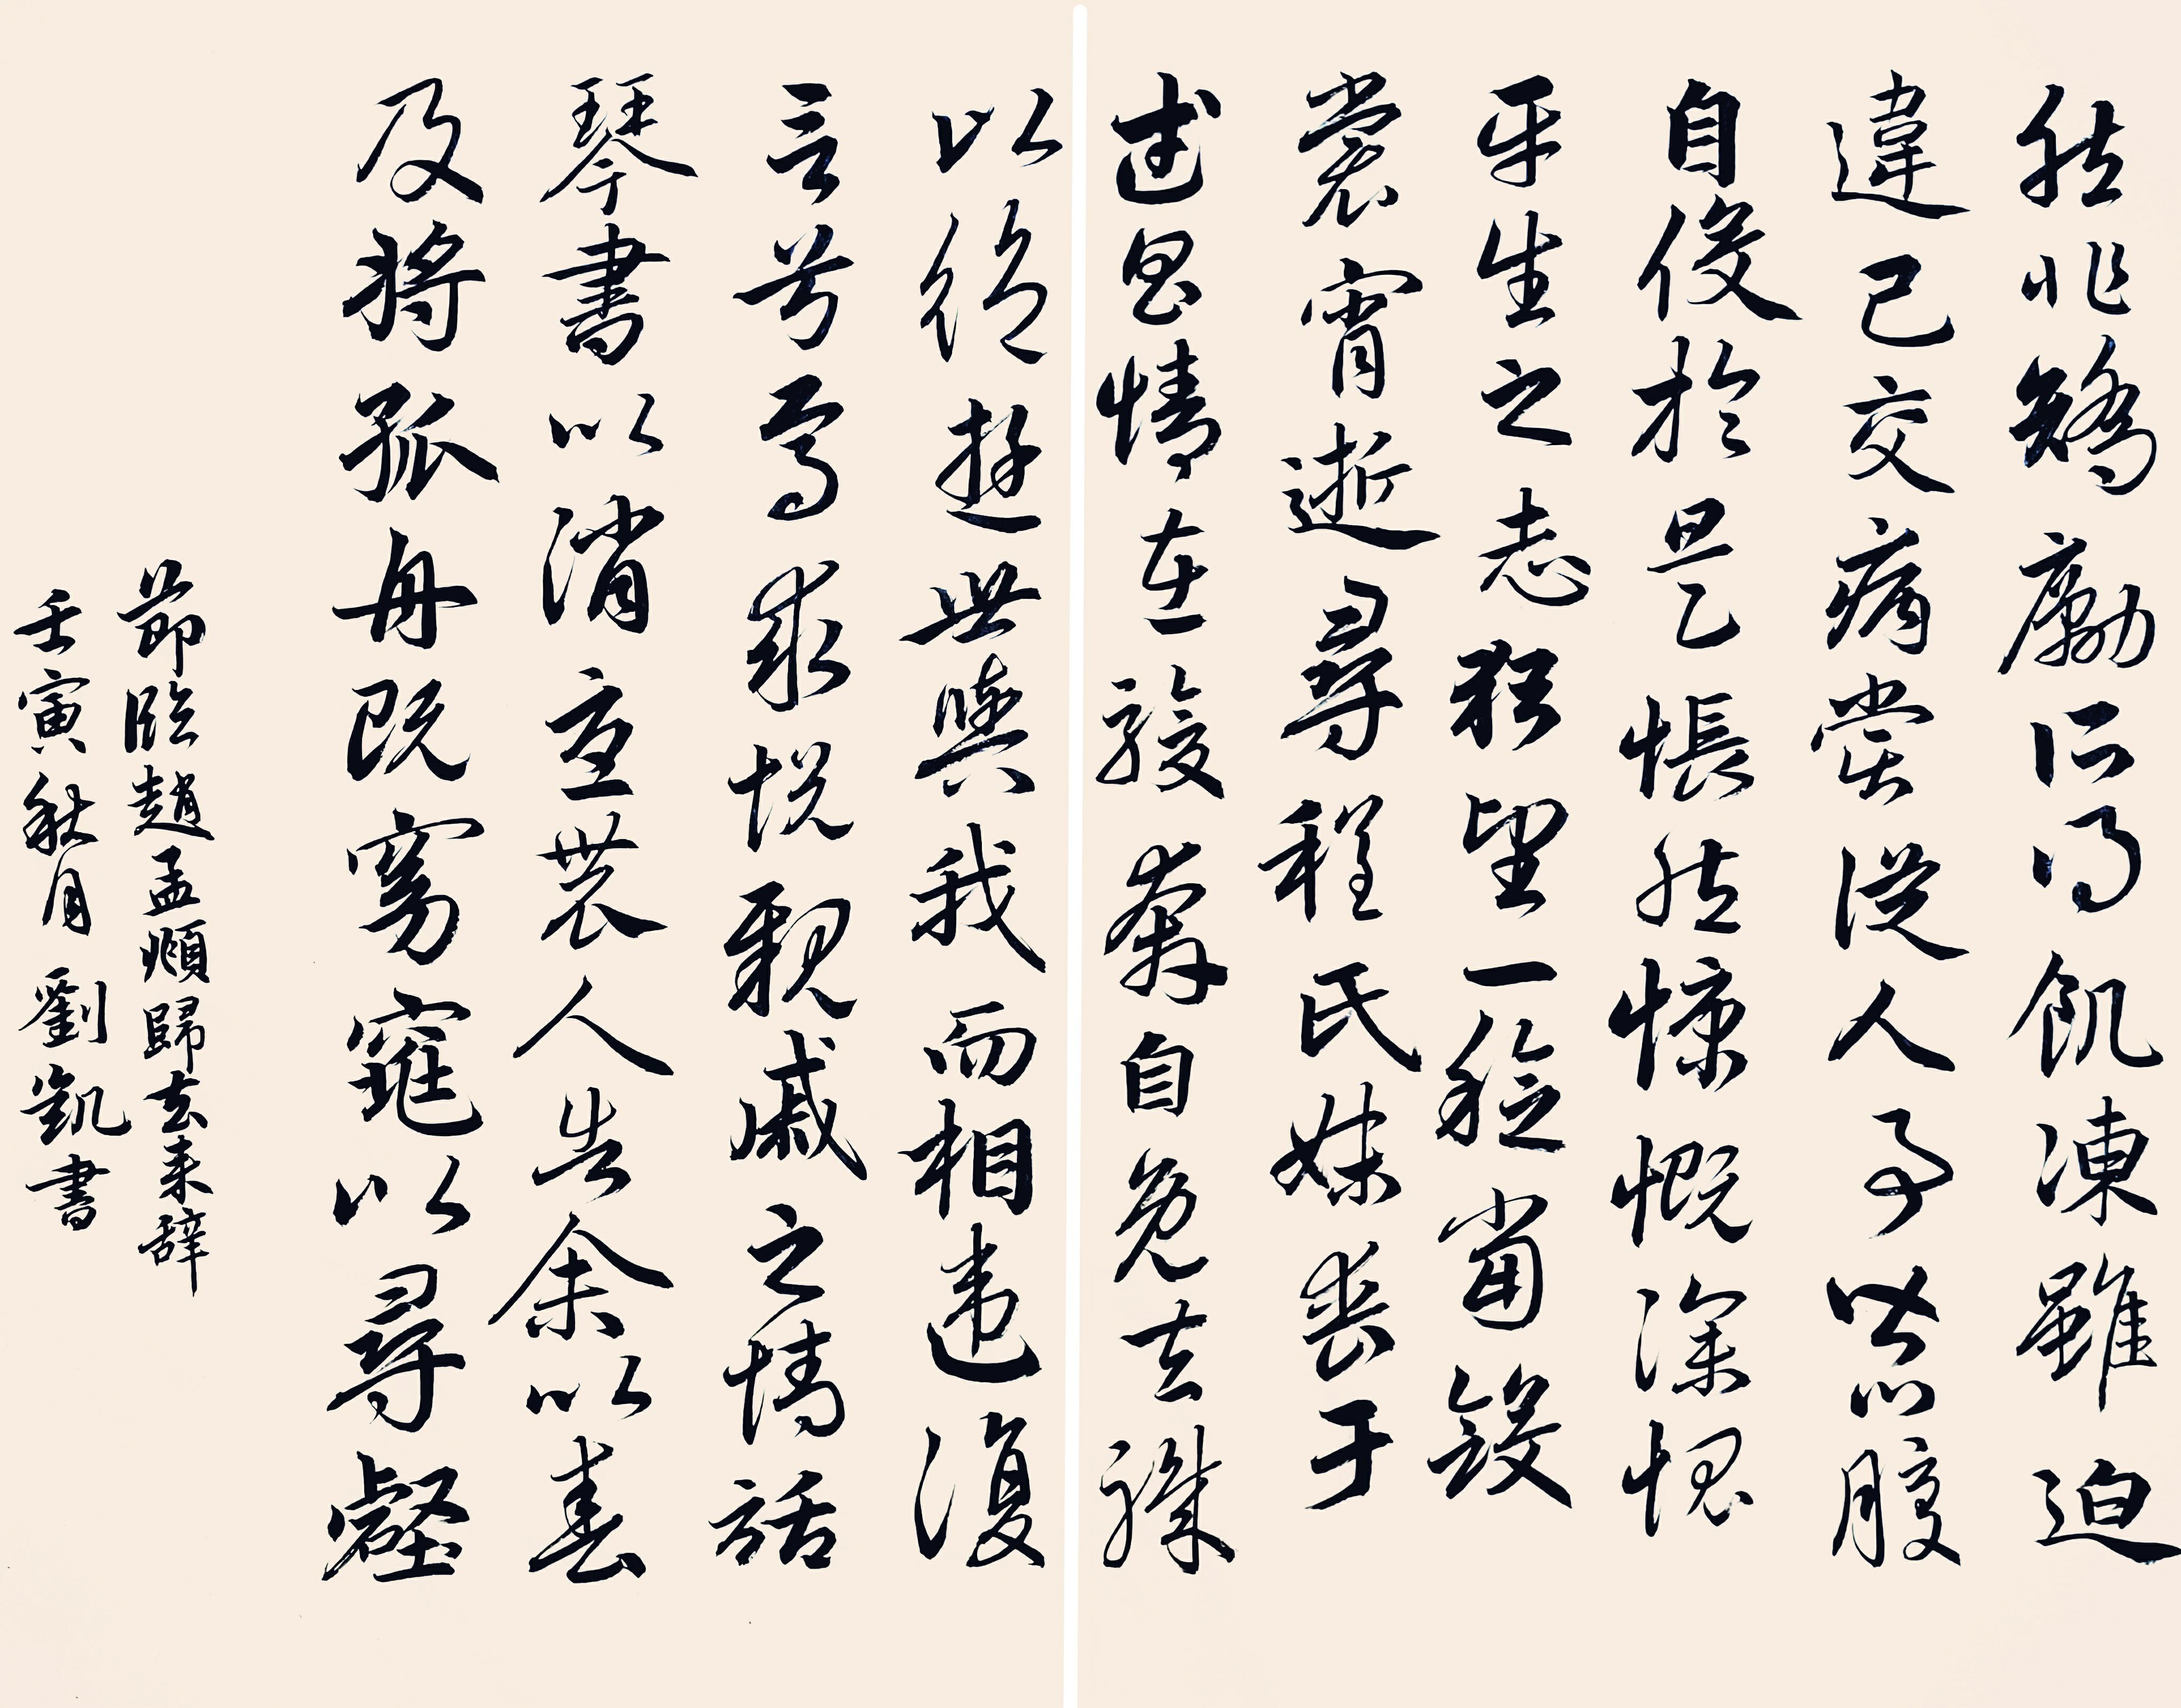 然非矯勵所得飢凍雖迫
違己交病嘗從人事皆口腹
自役於是悵然慷慨深愧
平生之志猶望一稔當斂
裳宵逝尋程氏妹喪于
武昌情在駿奔自免去職
以絕遊世與我而相違復
言兮焉求悅親戚之情話
琴書以消憂農人告余以春
及將孤舟既窈窕以尋壑
節臨趙孟頫歸去來辭
壬寅秋月劉凱書